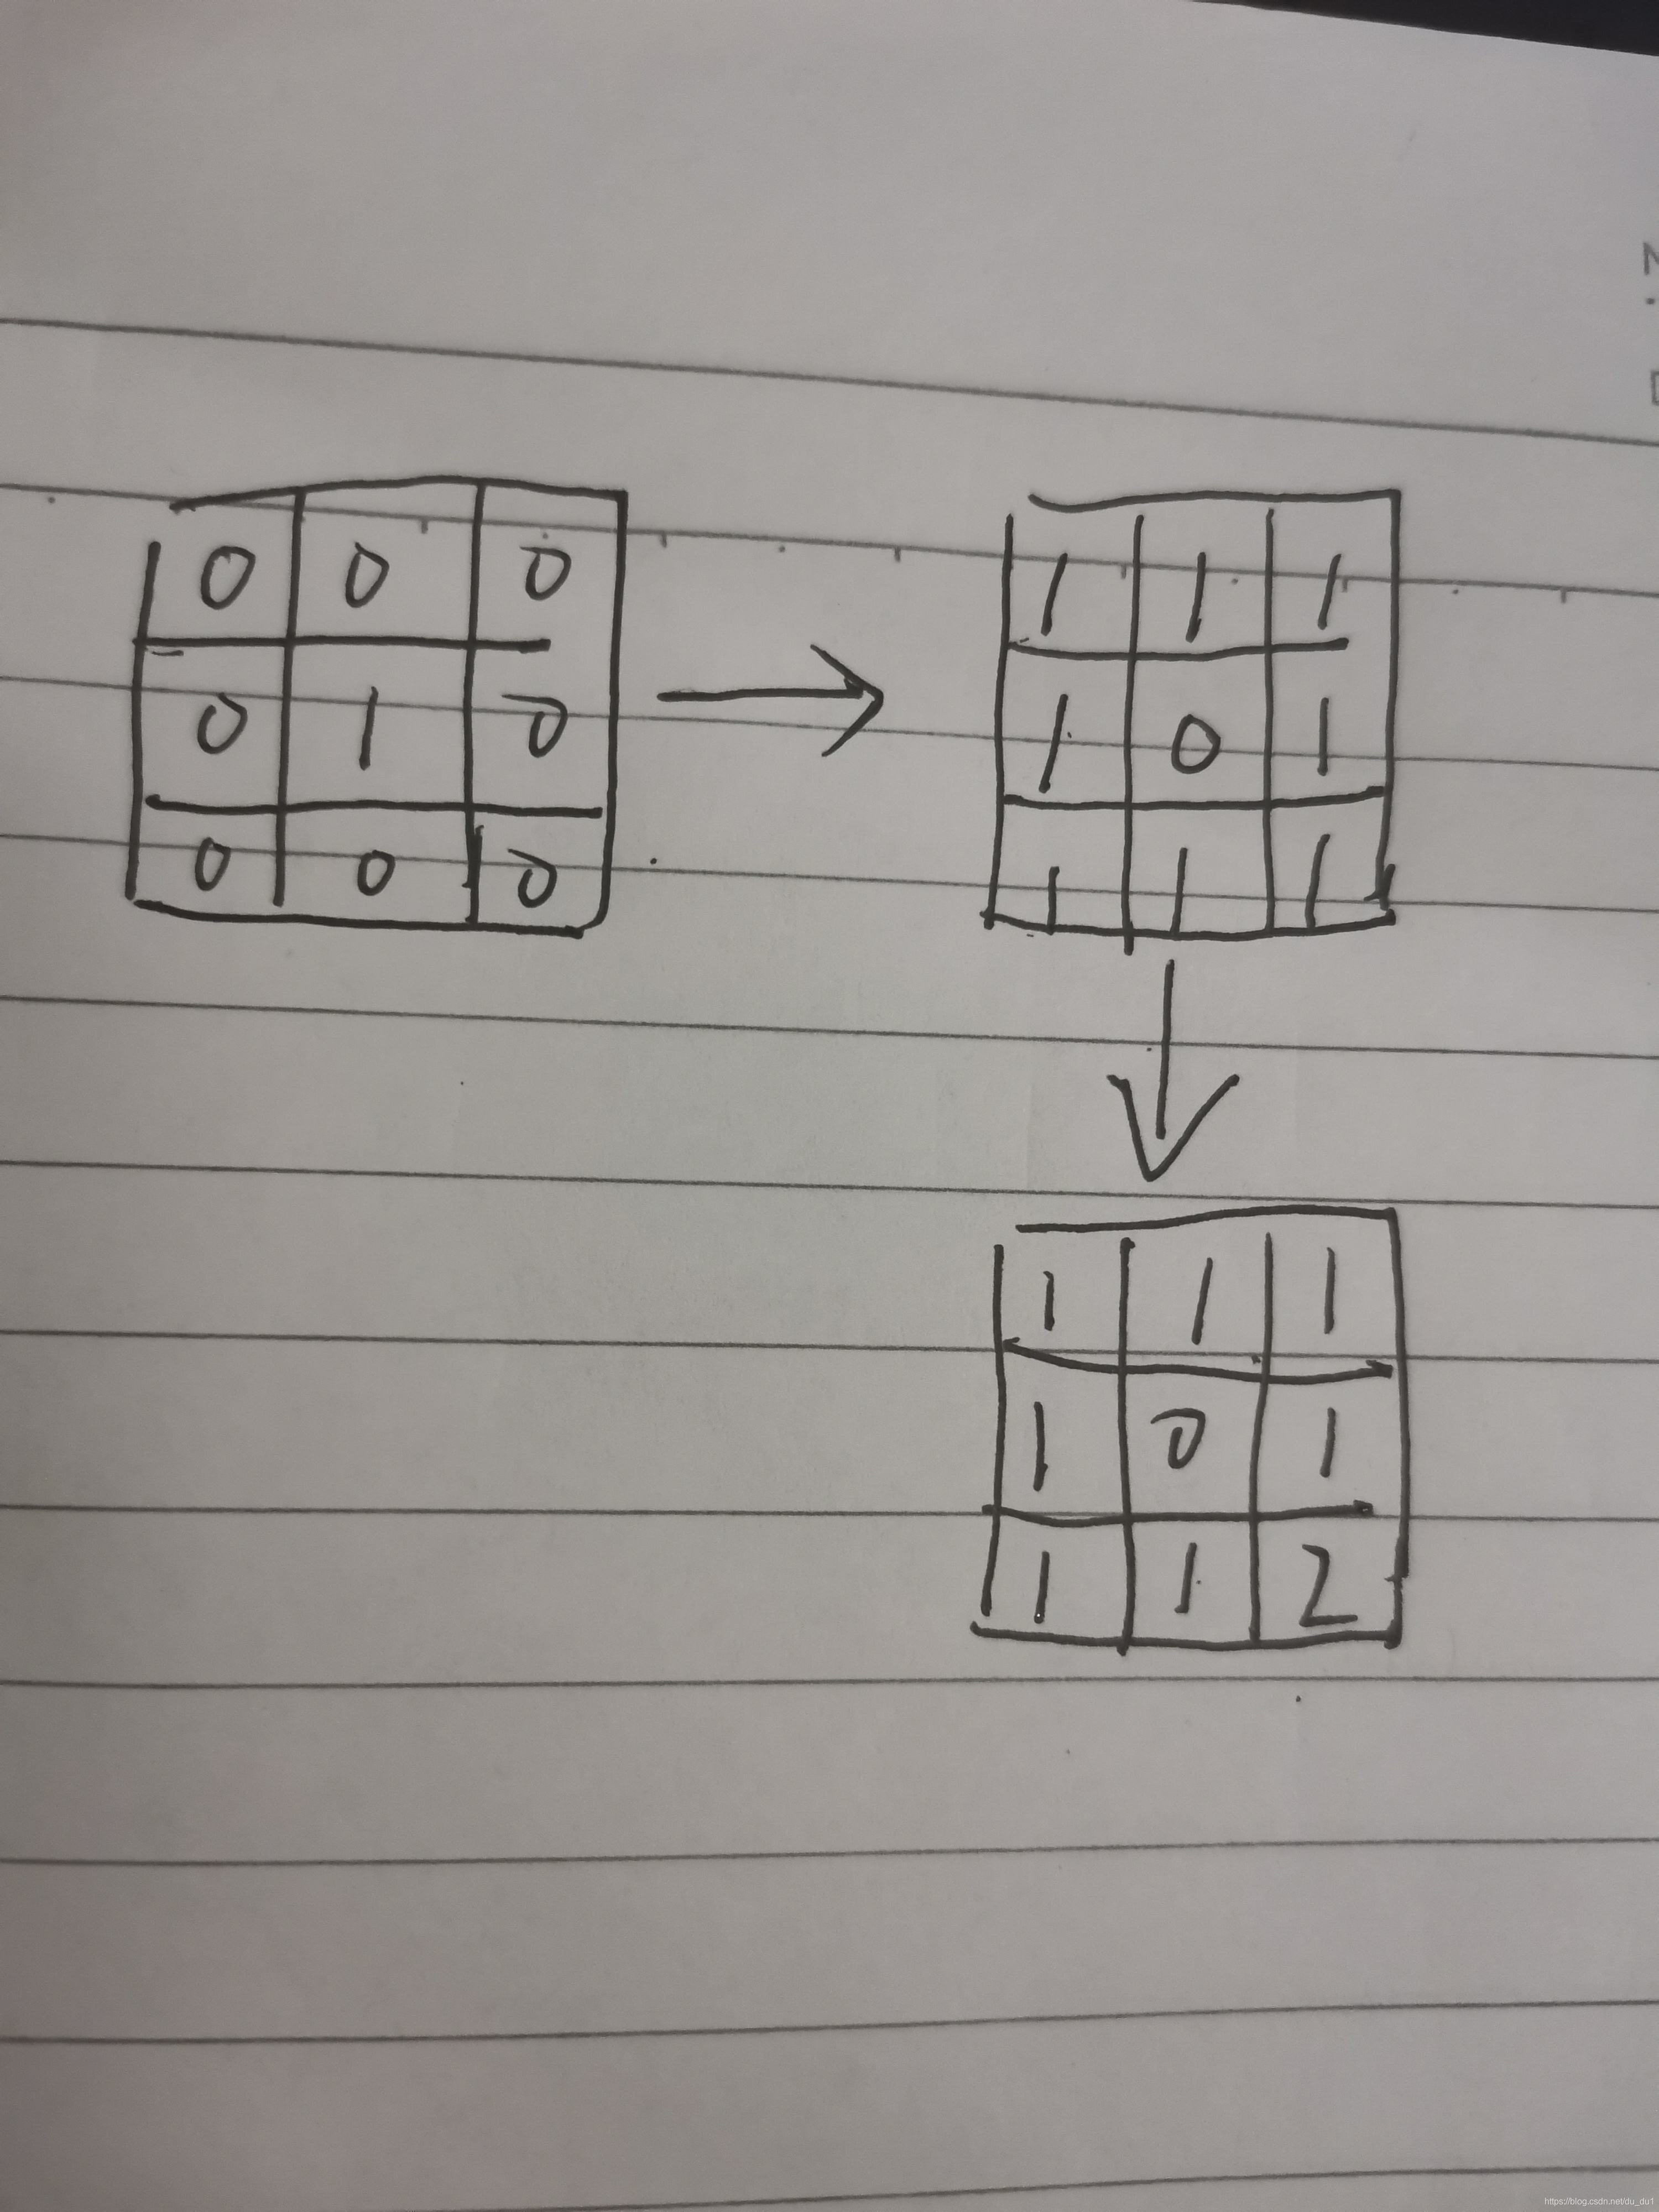 0 0 0
0 1 0
0 0 0
1 1 1
1 0 1
1 1 1
1 1 1
1 0 1
1 1 2
https://blog.csdn.net/du_du1